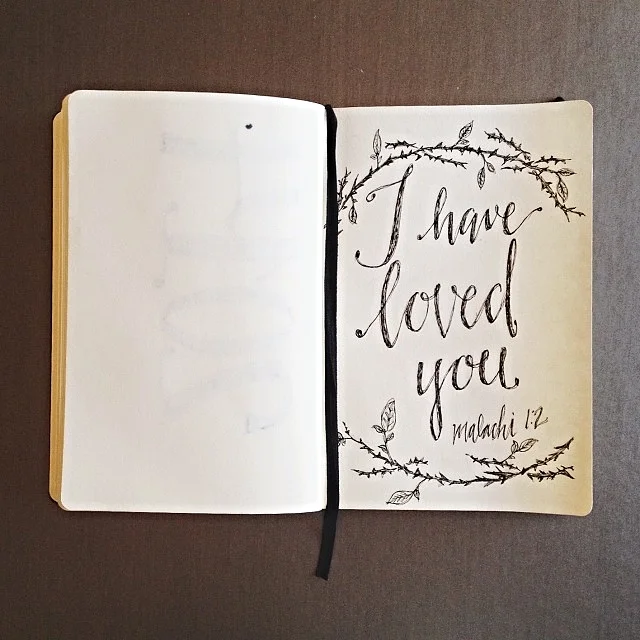 I have
loved
you
malachi 1:2